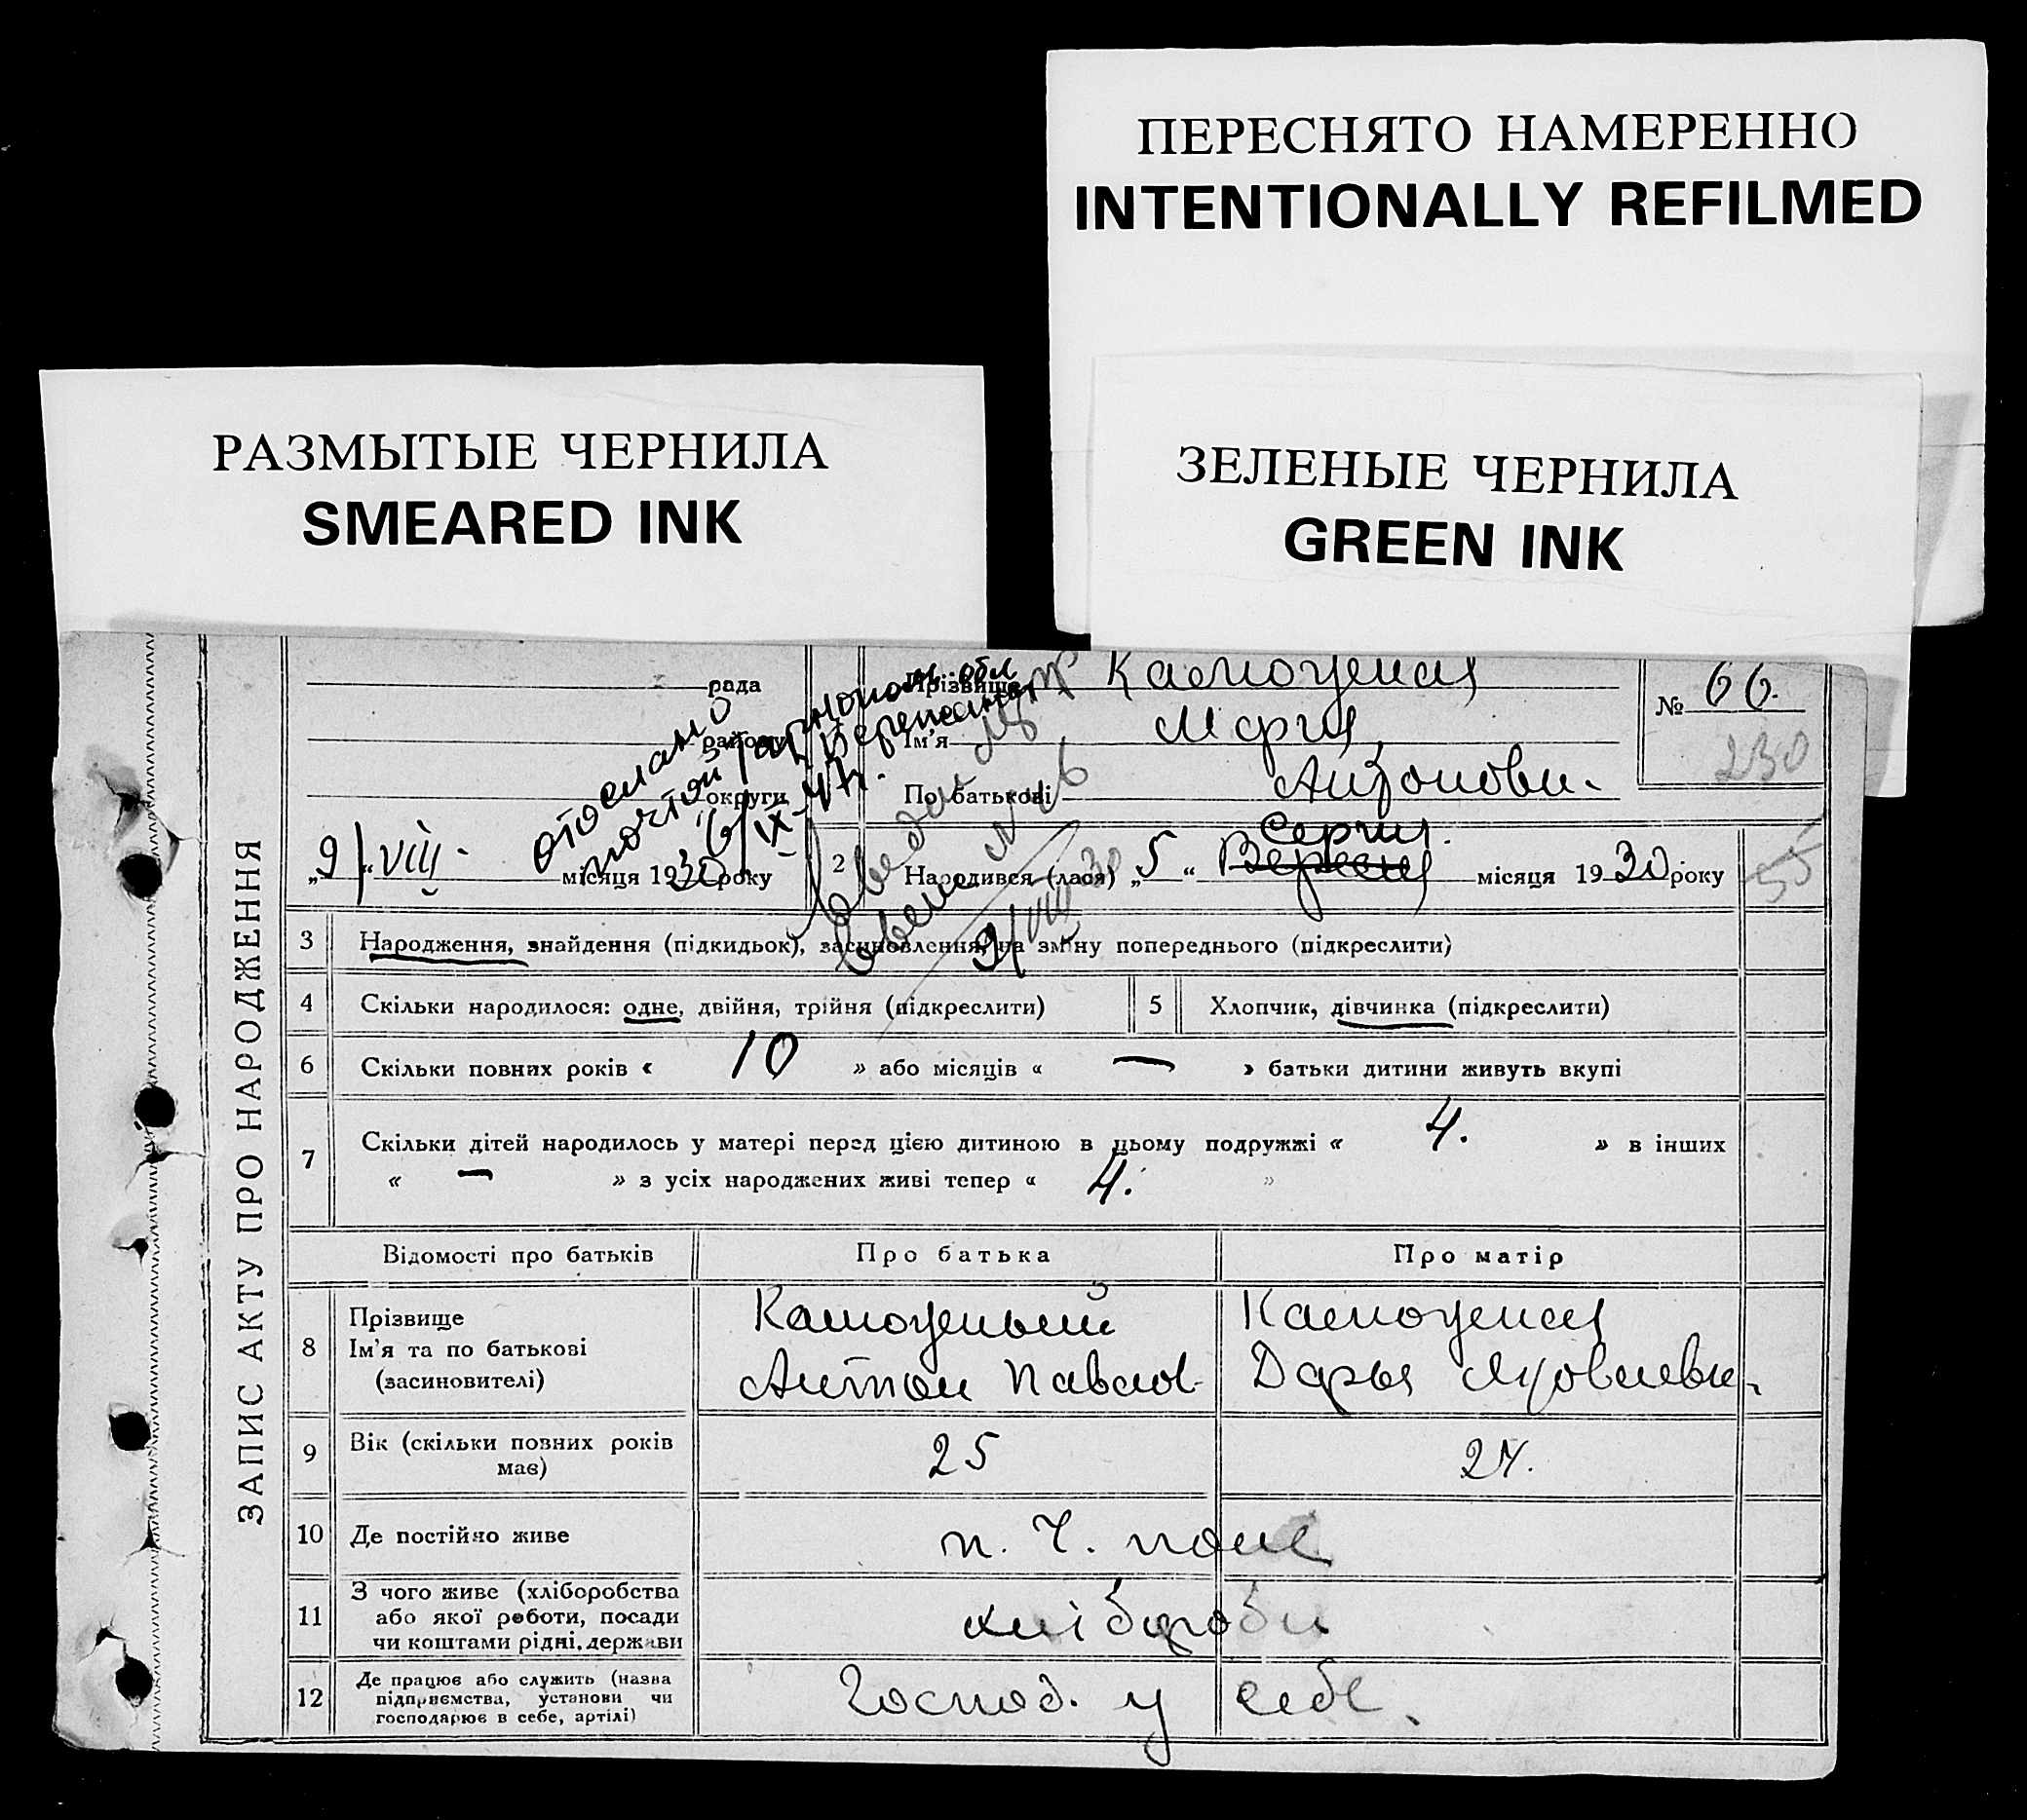 ПЕРЕСНЯТО НАМЕРЕННО
INTENTIONALLY REFILMED
РАЗМЫТЫЕ ЧЕРНИЛА
SMEARED INK
ЗЕЛЕНЫЕ ЧЕРНИЛА
GREEN INK
ЗАПИС АКТУ ПРО НАРОДЖЕННЯ
рада
району
округи
„9“ VIII місяця 1930 року
отослано
почтой
IX-47г.
Прізвище
№ 66.
230
Ім'я Мария
По батькові Антонови-
Серпня.
2 Народився (лася) „5“ Вересня місяця 1930 року
55
3 Народження, знайдення (підкидьок), засиновлення, на зміну попереднього (підкреслити)
4 Скільки народилося: одне, двійня, трійня (підкреслити)
5 Хлопчик, дівчинка (підкреслити)
6 Скільки повних років « 10 » або місяців « — » батьки дитини живуть вкупі
7 Скільки дітей народилось у матері перед цією дитиною в цьому подружжі « 4. » в інших
« — » з усіх народжених живі тепер « 4. »
Відомості про батьків Про батька Про матір
8 Прізвище
Ім'я та по батькові
(засиновителі)
Антон Павлов-
Дарья Яковлевн-
9 Вік (скільки повних років
має)
25
27.
10 Де постійно живе
11 З чого живе (хліборобства
або якої роботи, посади
чи коштами рідні, держави
хлібороби
12 Де працює або служить (назва
підприємства, установи чи
господарює в себе, артілі)
Господ. у себе.